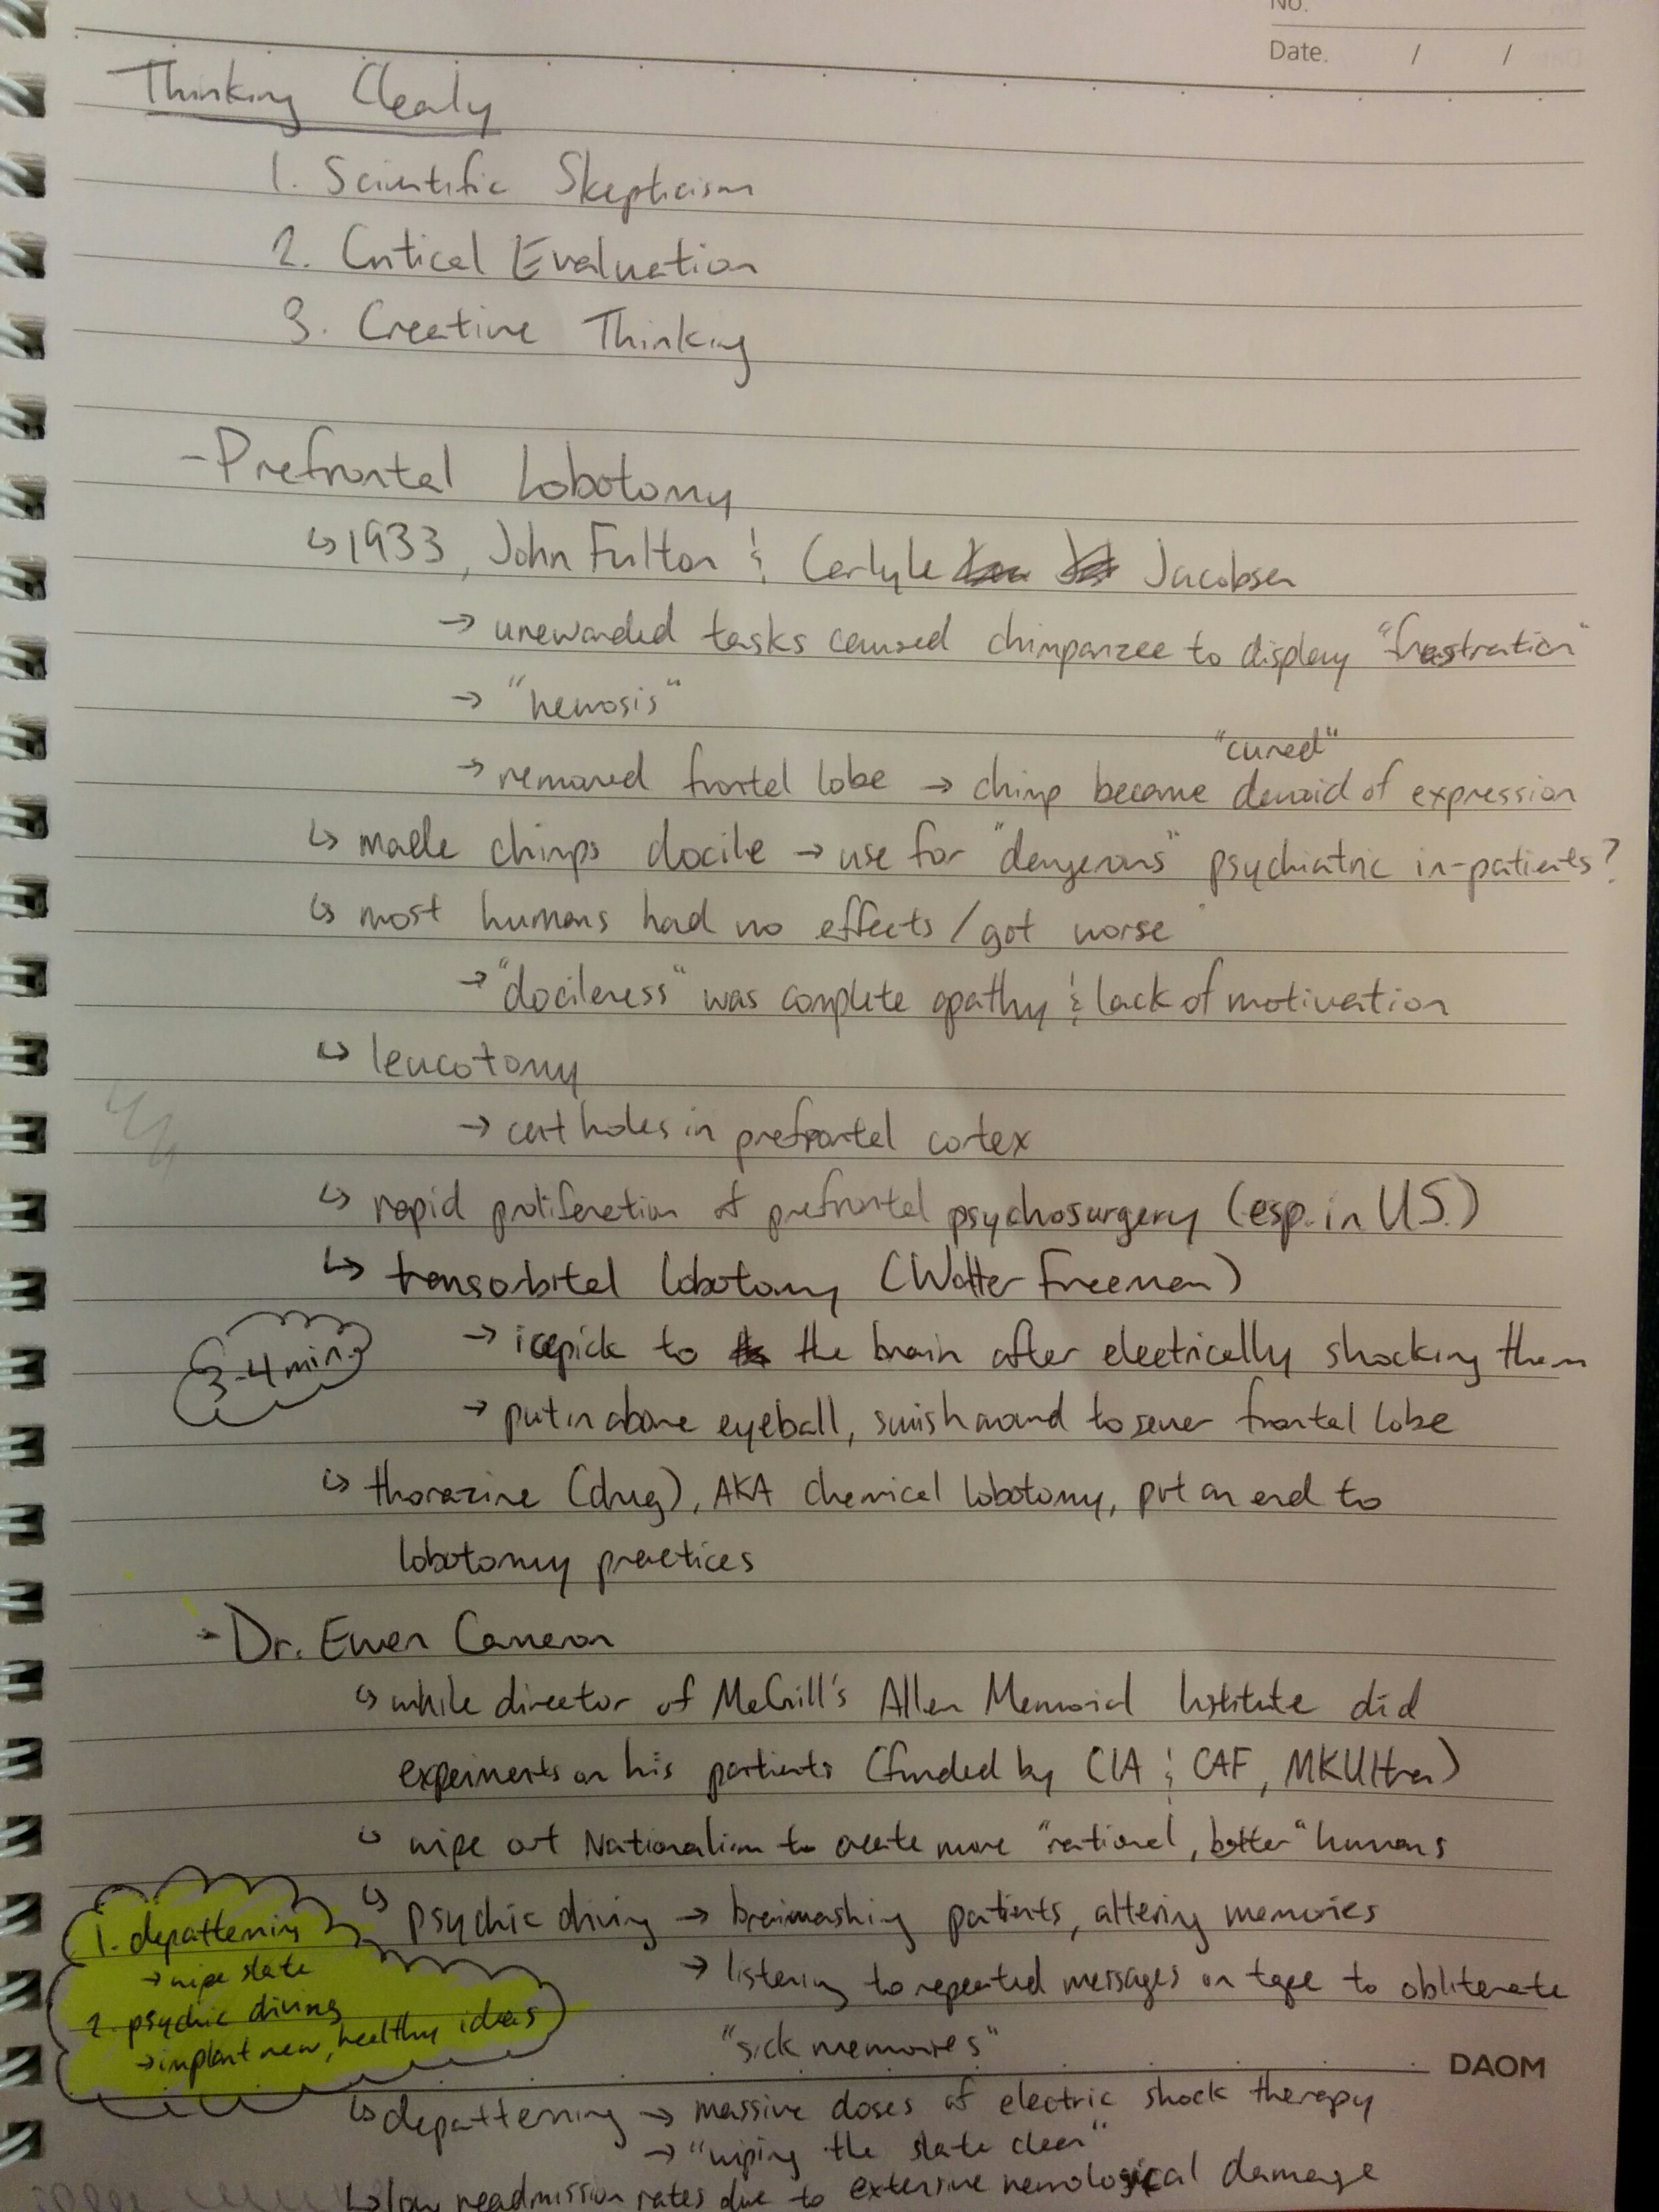 No.
Date. / /
Thinking Clealy
1. Scientific Skepticism
2. Critical Evaluation
3. Creative Thinking
- Prefrontal Lobotomy
↳ 1933, John Fulton & Carlyle Jacobsen
→ unrewarded tasks caused chimpanzee to display "frustration"
→ "neurosis"
"cured"
→ removed frontal lobe → chimp became devoid of expression
↳ made chimps docile → use for "dangerous" psychiatric in-patients?
↳ most humans had no effects/got worse
→ "docileness" was complete apathy & lack of motivation
↳ leucotomy
→ cut holes in prefrontal cortex
↳ rapid proliferation of prefrontal psychosurgery (esp. in U.S.)
↳ transorbital lobotomy (Walter Freeman)
3-4 min.
→ icepick to the brain after electrically shocking them
→ put in above eyeball, swish around to sever frontal lobe
↳ thorazine (drug), AKA chemical lobotomy, put an end to
lobotomy practices
- Dr. Ewen Cameron
↳ while director of McGill's Allen Memorial Institute did
experiments on his patients (funded by CIA & CAF, MKUltra)
↳ wipe out Nationalism to create more "rational, better" humans
↳ psychic driving → brainwashing patients, altering memories
→ listening to repeated messages on tape to obliterate
"sick memories"
1. depatterning
→ wipe slate
2. psychic driving
→ implant new, healthy ideas
DAOM
↳ depatterning → massive doses of electric shock therapy
→ "wiping the slate clean"
↳ low readmission rates due to extensive neurological damage